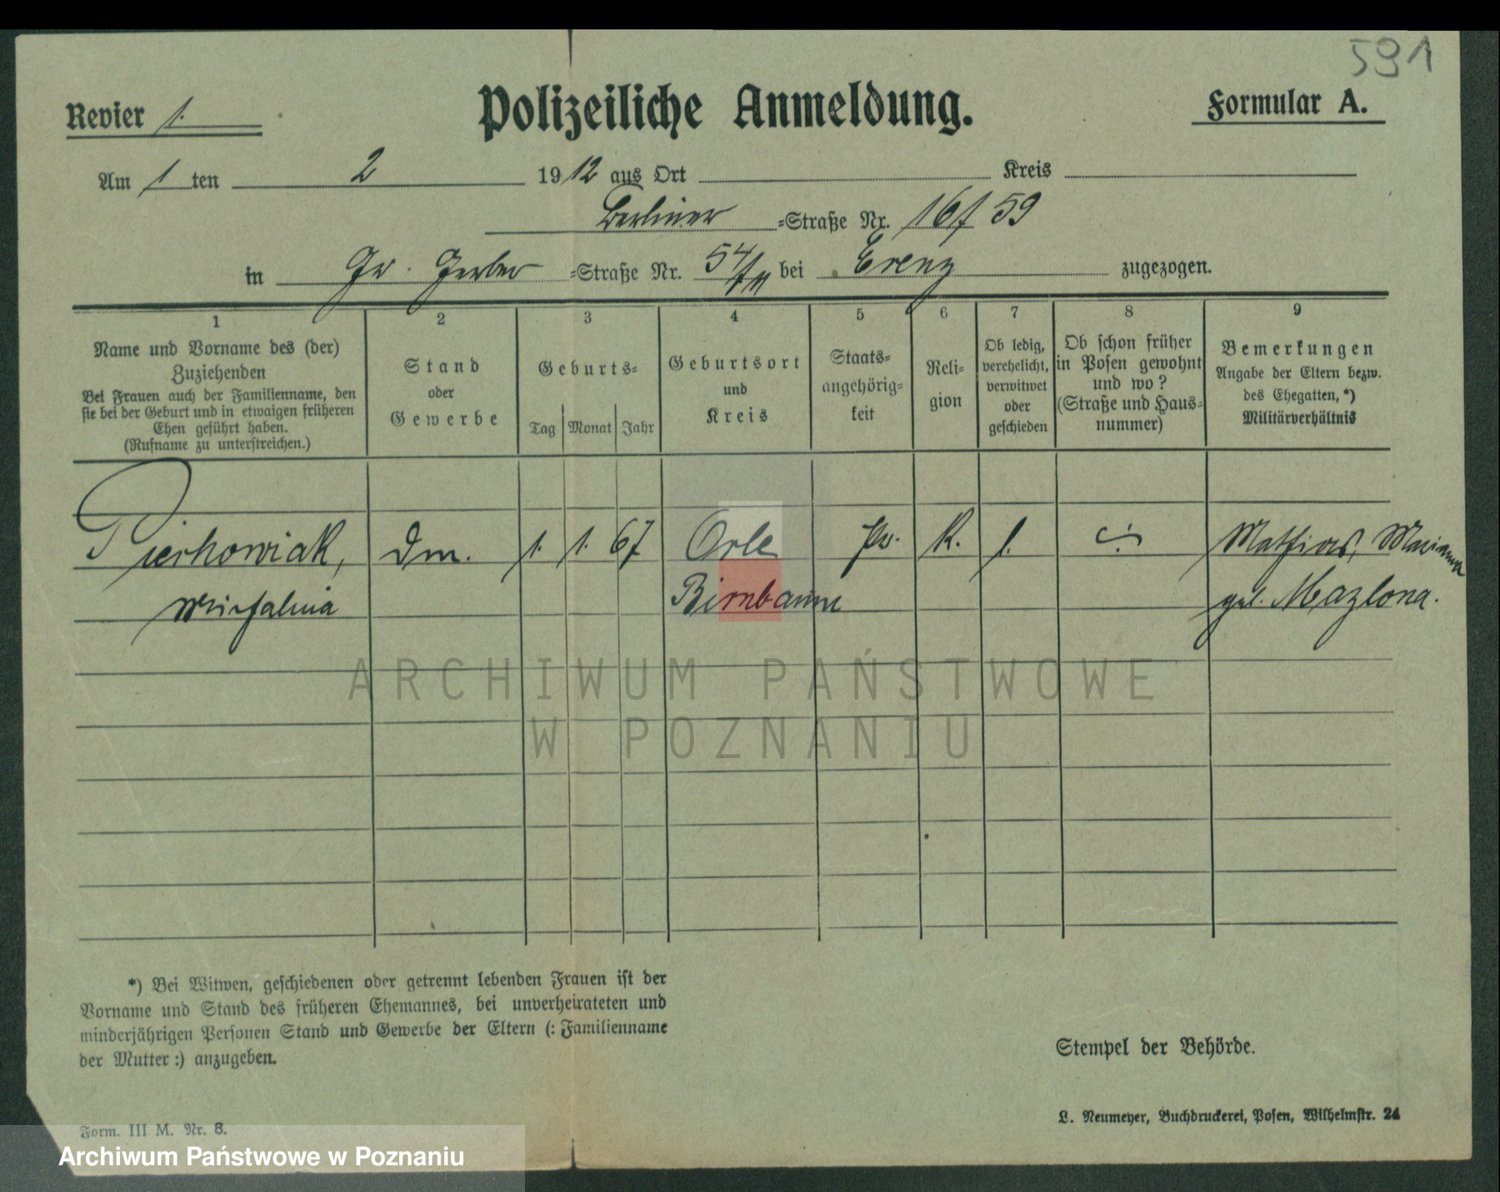 591
Revier 1.
Polizeiliche Anmeldung.
Formular A.
Am 1 ten 2 1912 aus Ort Kreis
Berliner -Straße Nr. 16 f 59
in Gr. Gerber -Straße Nr. 54/III bei Erenz zugezogen.
1 2 3 4 5 6 7 8 9
Name und Vorname des (der)
Zuziehenden
Bei Frauen auch der Familienname, den
sie bei der Geburt und in etwaigen früheren
Ehen geführt haben.
(Rufname zu unterstreichen.)
Stand
oder
Gewerbe
Geburts-
Tag Monat Jahr
Geburtsort
und
Kreis
Staats-
angehörig-
keit
Reli-
gion
Ob ledig,
verehelicht,
verwitwet
oder
geschieden
Ob schon früher
in Posen gewohnt
und wo?
(Straße und Haus-
nummer)
Bemerkungen
Angabe der Eltern bezw.
des Ehegatten, *)
Militärverhältnis
Pierhowiak, Dm. 1. 1. 67 Orle Pr. K. l. Mathias, Marianna
Michalina Birnbaum geb. Mazlona.
ARCHIWUM PAŃSTWOWE
W POZNANIU
*) Bei Witwen, geschiedenen oder getrennt lebenden Frauen ist der
Vorname und Stand des früheren Ehemannes, bei unverheirateten und
minderjährigen Personen Stand und Gewerbe der Eltern (: Familienname
der Mutter :) anzugeben.
Stempel der Behörde.
Form. III M. Nr. 8.
L. Neumeyer, Buchdruckerei, Posen, Wilhelmstr. 24
Archiwum Państwowe w Poznaniu